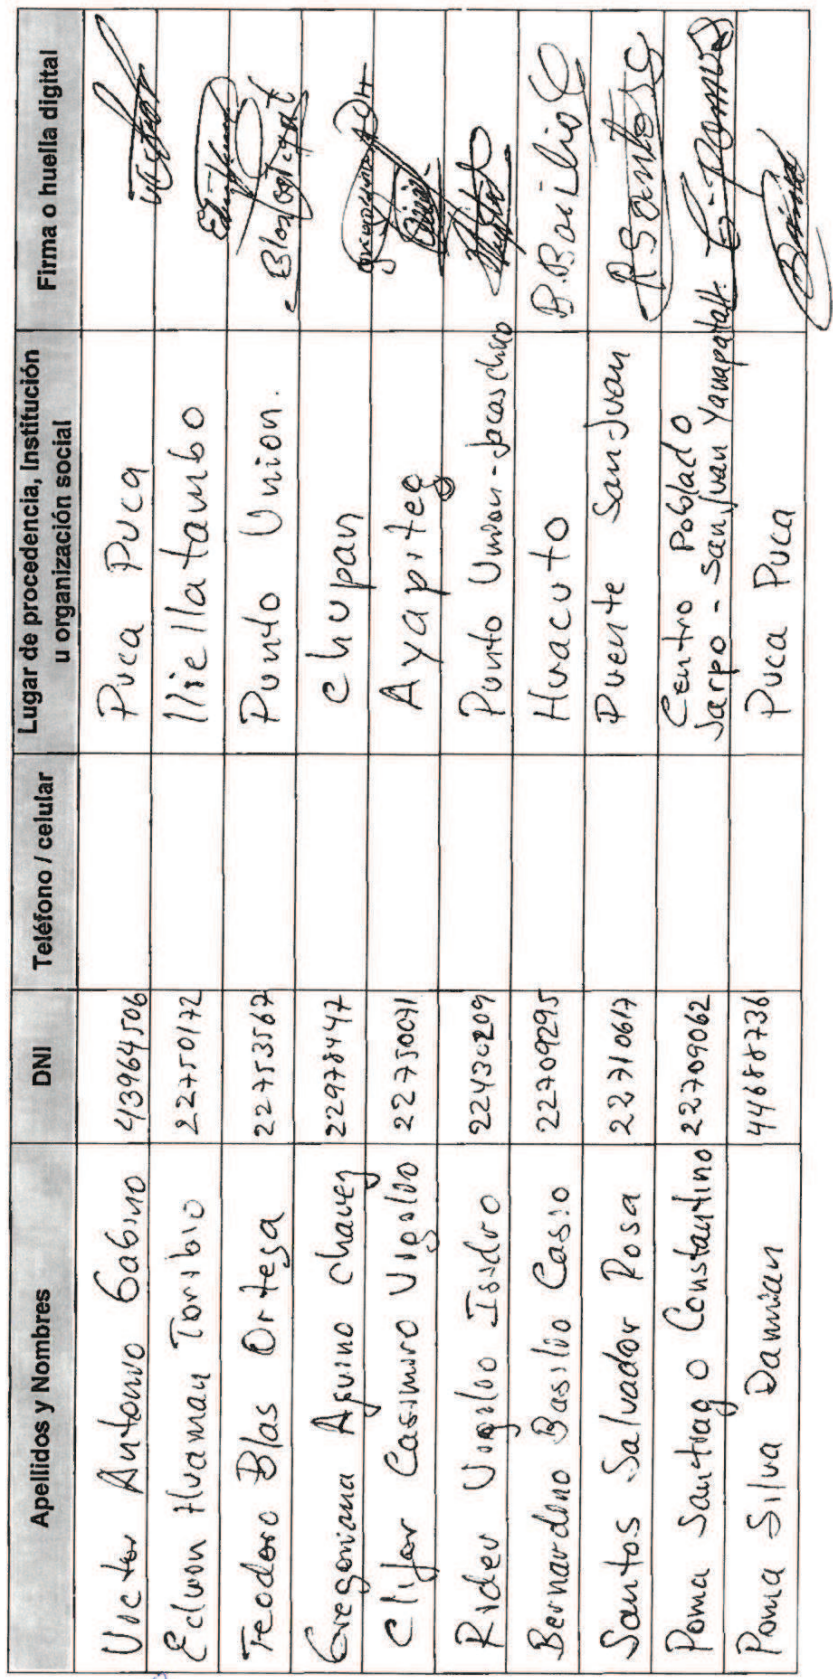 Apellidos y Nombres DNI Teléfono / celular Lugar de procedencia, Institución u organización social Firma o huella digital
Victor Antonio Gabino 43964506 Puca Puca
Edwon Huaman Toribio 22750172 Llicllatambo
Teodoro Blas Ortega 22753567 Punto Union.
Gregoriana Aquino Chavez 22978447 Chupan
Clifor Casimiro Vigilio 22750091 Ayapiteg
Rider Vigilio Isidro 22430209 Punto Union - Jacas Chico
Bernardino Basilio Casio 22709295 Huacuto B. Basilio C
Santos Salvador Rosa 22710617 Puente San Juan RSantosS
Poma Santiago Constantino 22709062 Centro Poblado
Sarpo - San Juan
Poma Silva Damian 44688736 Puca Puca